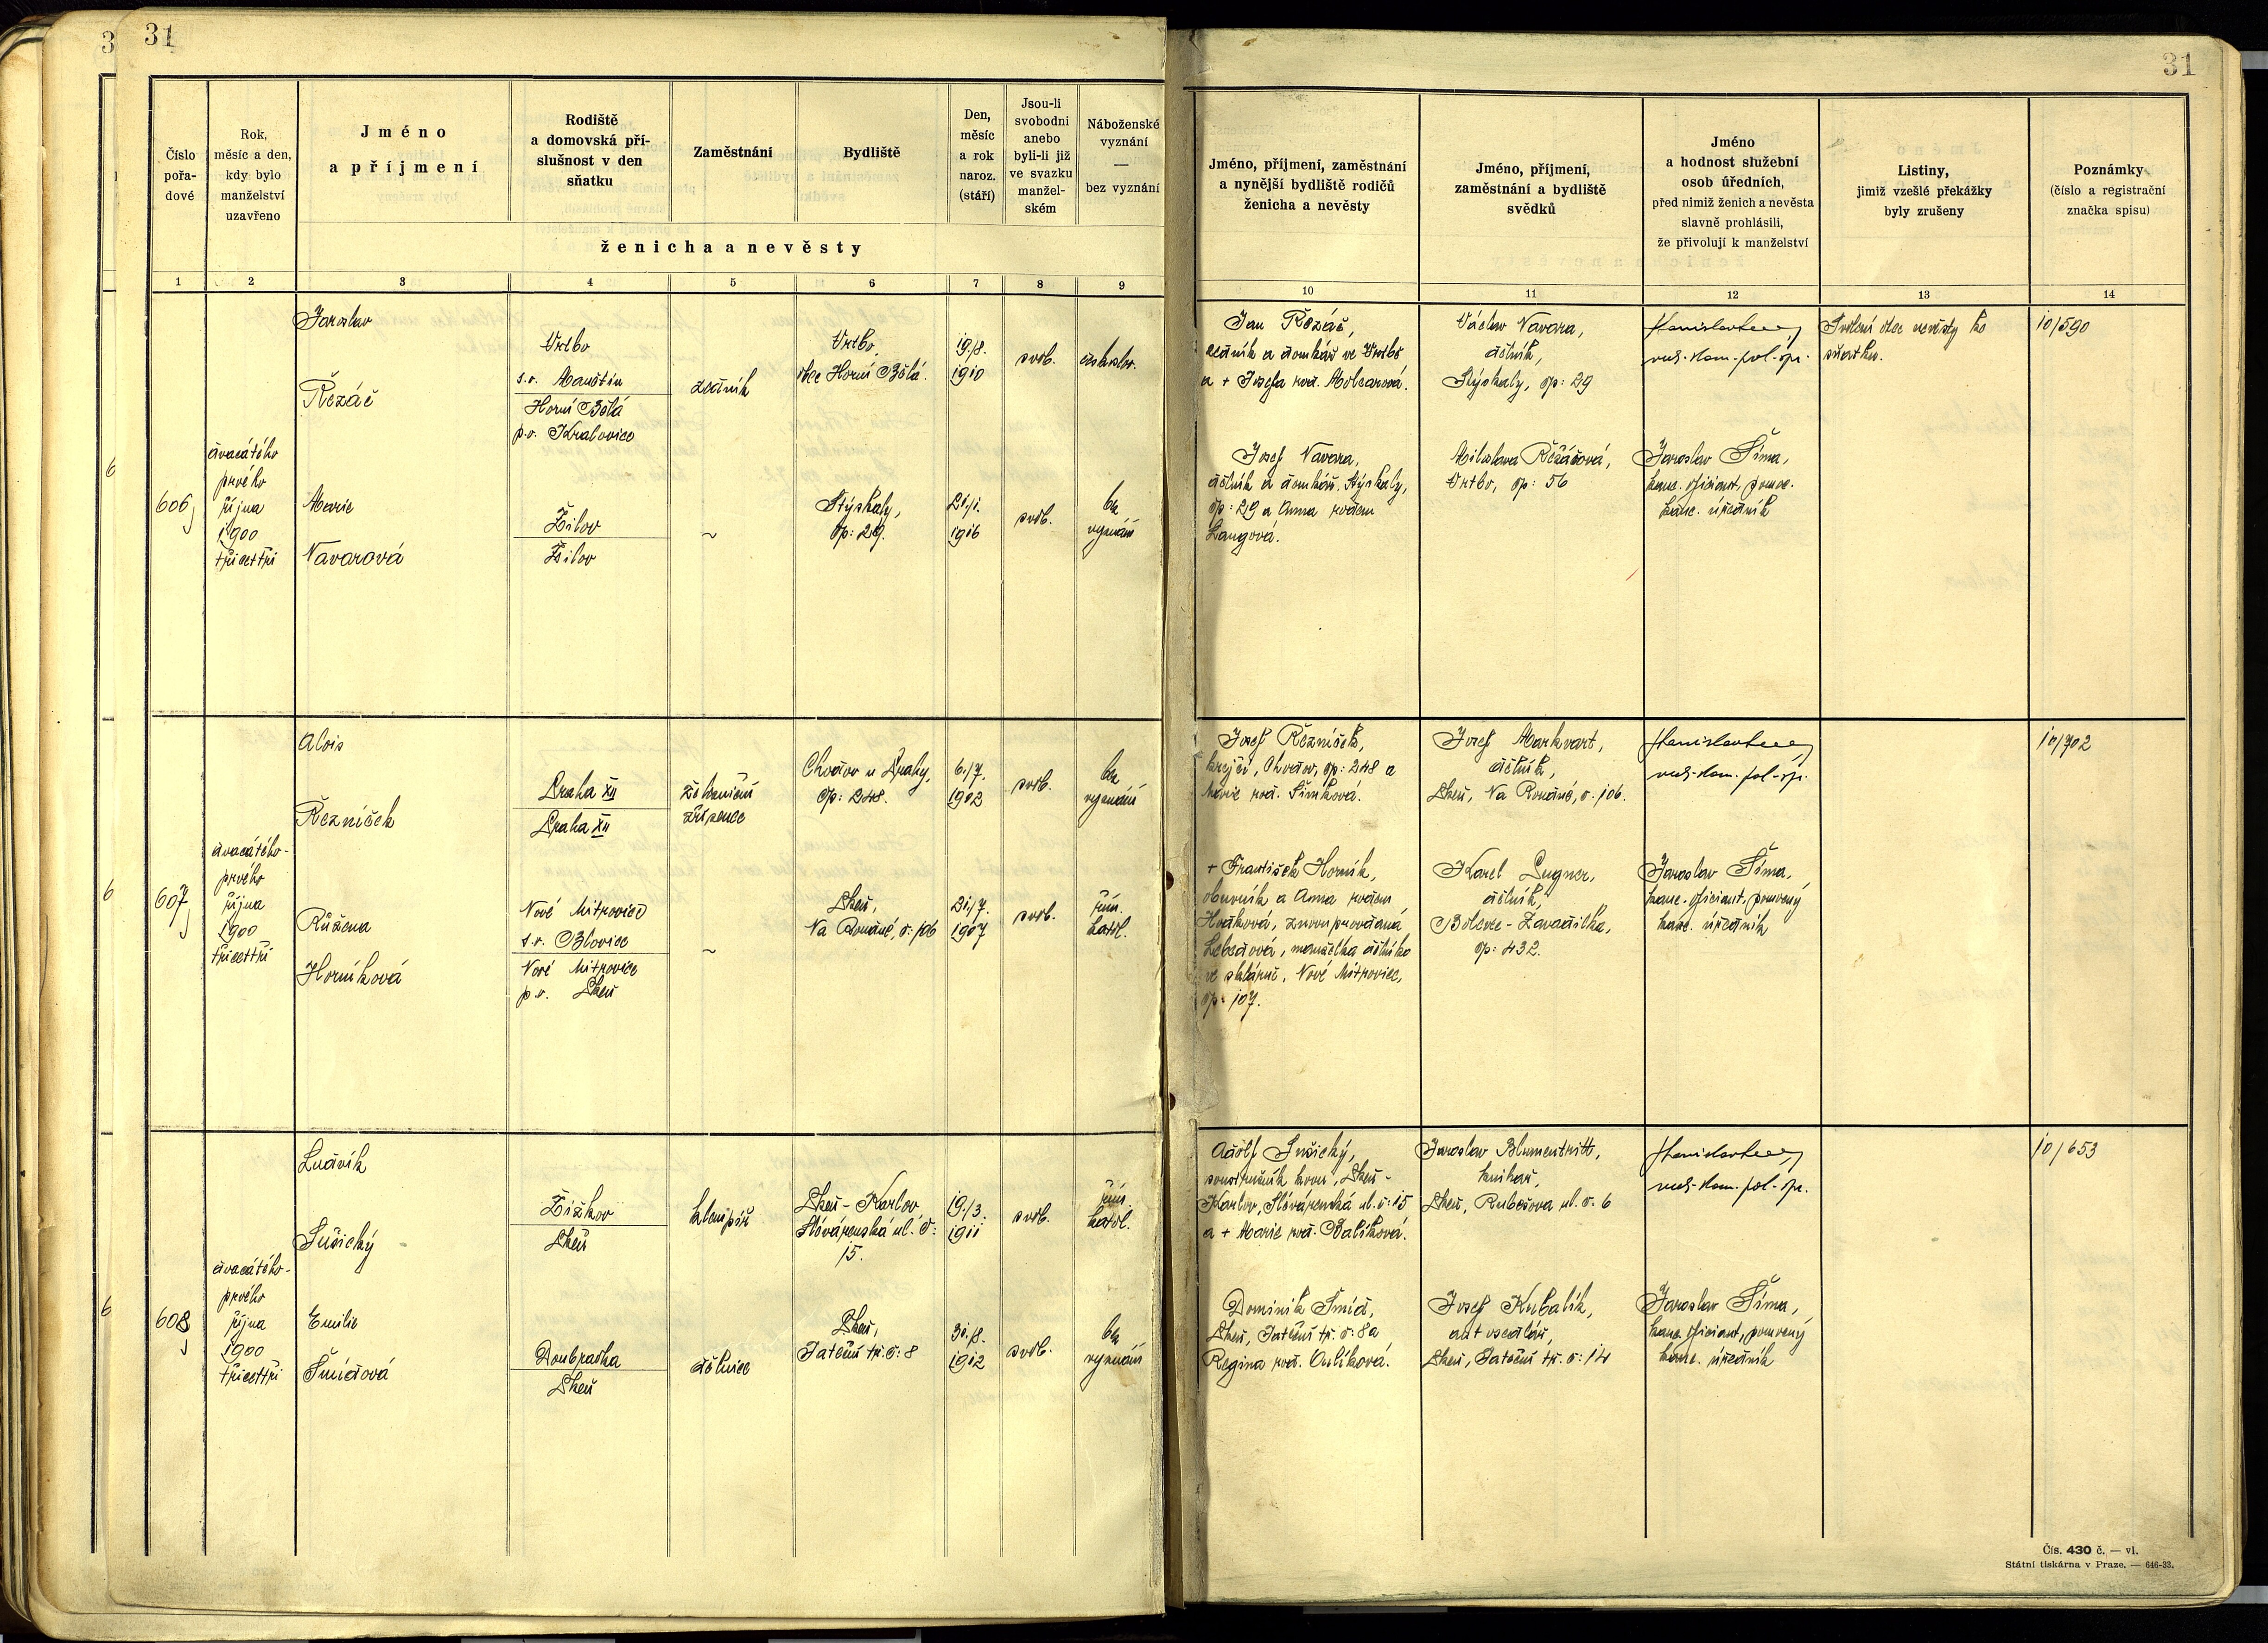 31
31
Číslo
pořa-
dové
Rok,
měsíc a den,
kdy bylo
manželství
uzavřeno
Jméno
a příjmení
Rodiště
a domovská pří-
slušnost v den
sňatku
Zaměstnání
Bydliště
Den,
měsíc
a rok
naroz.
(stáří)
Jsou-li
svobodni
anebo
byli-li již
ve svazku
manžel-
ském
Náboženské
vyznání
—
bez vyznání
ženicha a nevěsty
Jméno, příjmení, zaměstnání
a nynější bydliště rodičů
ženicha a nevěsty
Jméno, příjmení,
zaměstnání a bydliště
svědků
Jméno
a hodnost služební
osob úředních,
před nimiž ženich a nevěsta
slavně prohlásili,
že přivolují k manželství
Listiny,
jimiž vzešlé překážky
byly zrušeny
Poznámky
(číslo a registrační
značka spisu)
1 2 3 4 5 6 7 8 9 10 11 12 13 14
606
dvacátého
prvého
října
1900
třicettři
Jaroslav
Řezáč
Vrtbo
s.o. Manětín
Horní Bělá
p.o. Kralovice
zedník
Vrtbo,
obec Horní Bělá.
19./8.
1910
svob.
českoslov.
Marie
Navarová
Žilov
Žilov
~
Stýskaly,
čp: 29.
21./1.
1916
svob.
bez
vyznání
Jan Řezáč,
zedník a domkář ve Vrtbě
a + Josefa roz. Molcarová.
Josef Navara,
dělník a domkář, Stýskaly,
čp: 29 a Anna rozem
Langová.
Václav Navara,
dělník,
Stýskaly, čp: 29
Miloslava Řezáčová,
Vrtbo, čp: 56
rad. kom. pol. spr.
Jaroslav Šíma,
kanc. oficiant, pomoc.
kanc. úředník
Svolení otce nevěsty ke
sňatku.
10/590
607
dvacátého-
prvého
října
1900
třicettři
Alois
Řezníček
Praha XII
Praha XII
železniční
zřízenec
Chodov u Prahy,
čp: 248.
6./7.
1902
svob.
bez
vyznání
Růžena
Horníková
Nové Mitrovice
s.o. Blovice
Nové Mitrovice
p.o. Plzeň
~
Plzeň,
Na Roudné, č: 106
31./7.
1907
svob.
řím.
katol.
Josef Řezníček,
krejčí, Chodov, čp: 248 a
Marie roz. Šimková.
+ František Horník,
obuvník a Anna rozem
Hrdková, znovuprovdaná
Lebedová, manželka dělníka
ve sklárně, Nové Mitrovice,
čp: 107.
Josef Markvart,
dělník,
Plzeň, Na Roudné, č: 106.
Karel Lugner,
dělník,
Bolevec - Zavadilka,
čp: 432.
rad. kom. pol. spr.
Jaroslav Šíma,
kanc. oficiant, pomocný
kanc. úředník
10/702
608
dvacátého-
prvého
října
1900
třicettři
Ludvík
Sušický
Žižkov
Plzeň
klempíř
Plzeň - Karlov,
Slévárenská ul. č:
15.
19./3.
1911
svob.
řím.
katol.
Emilie
Šmídová
Doubravka
Plzeň
dělnice
Plzeň,
Jateční tř. č: 8
31./8.
1912
svob.
bez
vyznání
Adolf Sušický,
soustružník kovů, Plzeň -
Karlov, Slévárenská ul. č: 15
a + Marie roz. Balíková.
Dominik Šmíd,
Plzeň, Jateční tř. č: 8 a
Regina roz. Aulíková.
Jaroslav Blumentritt,
knihař,
Plzeň, Rubešova ul. č. 6
Josef Kubalík,
Plzeň, Jateční tř. č: 14
rad. kom. pol. spr.
Jaroslav Šíma,
kanc. oficiant, pomocný
kanc. úředník
10/653
Čís. 430 č. — vl.
Státní tiskárna v Praze. — 646-33.